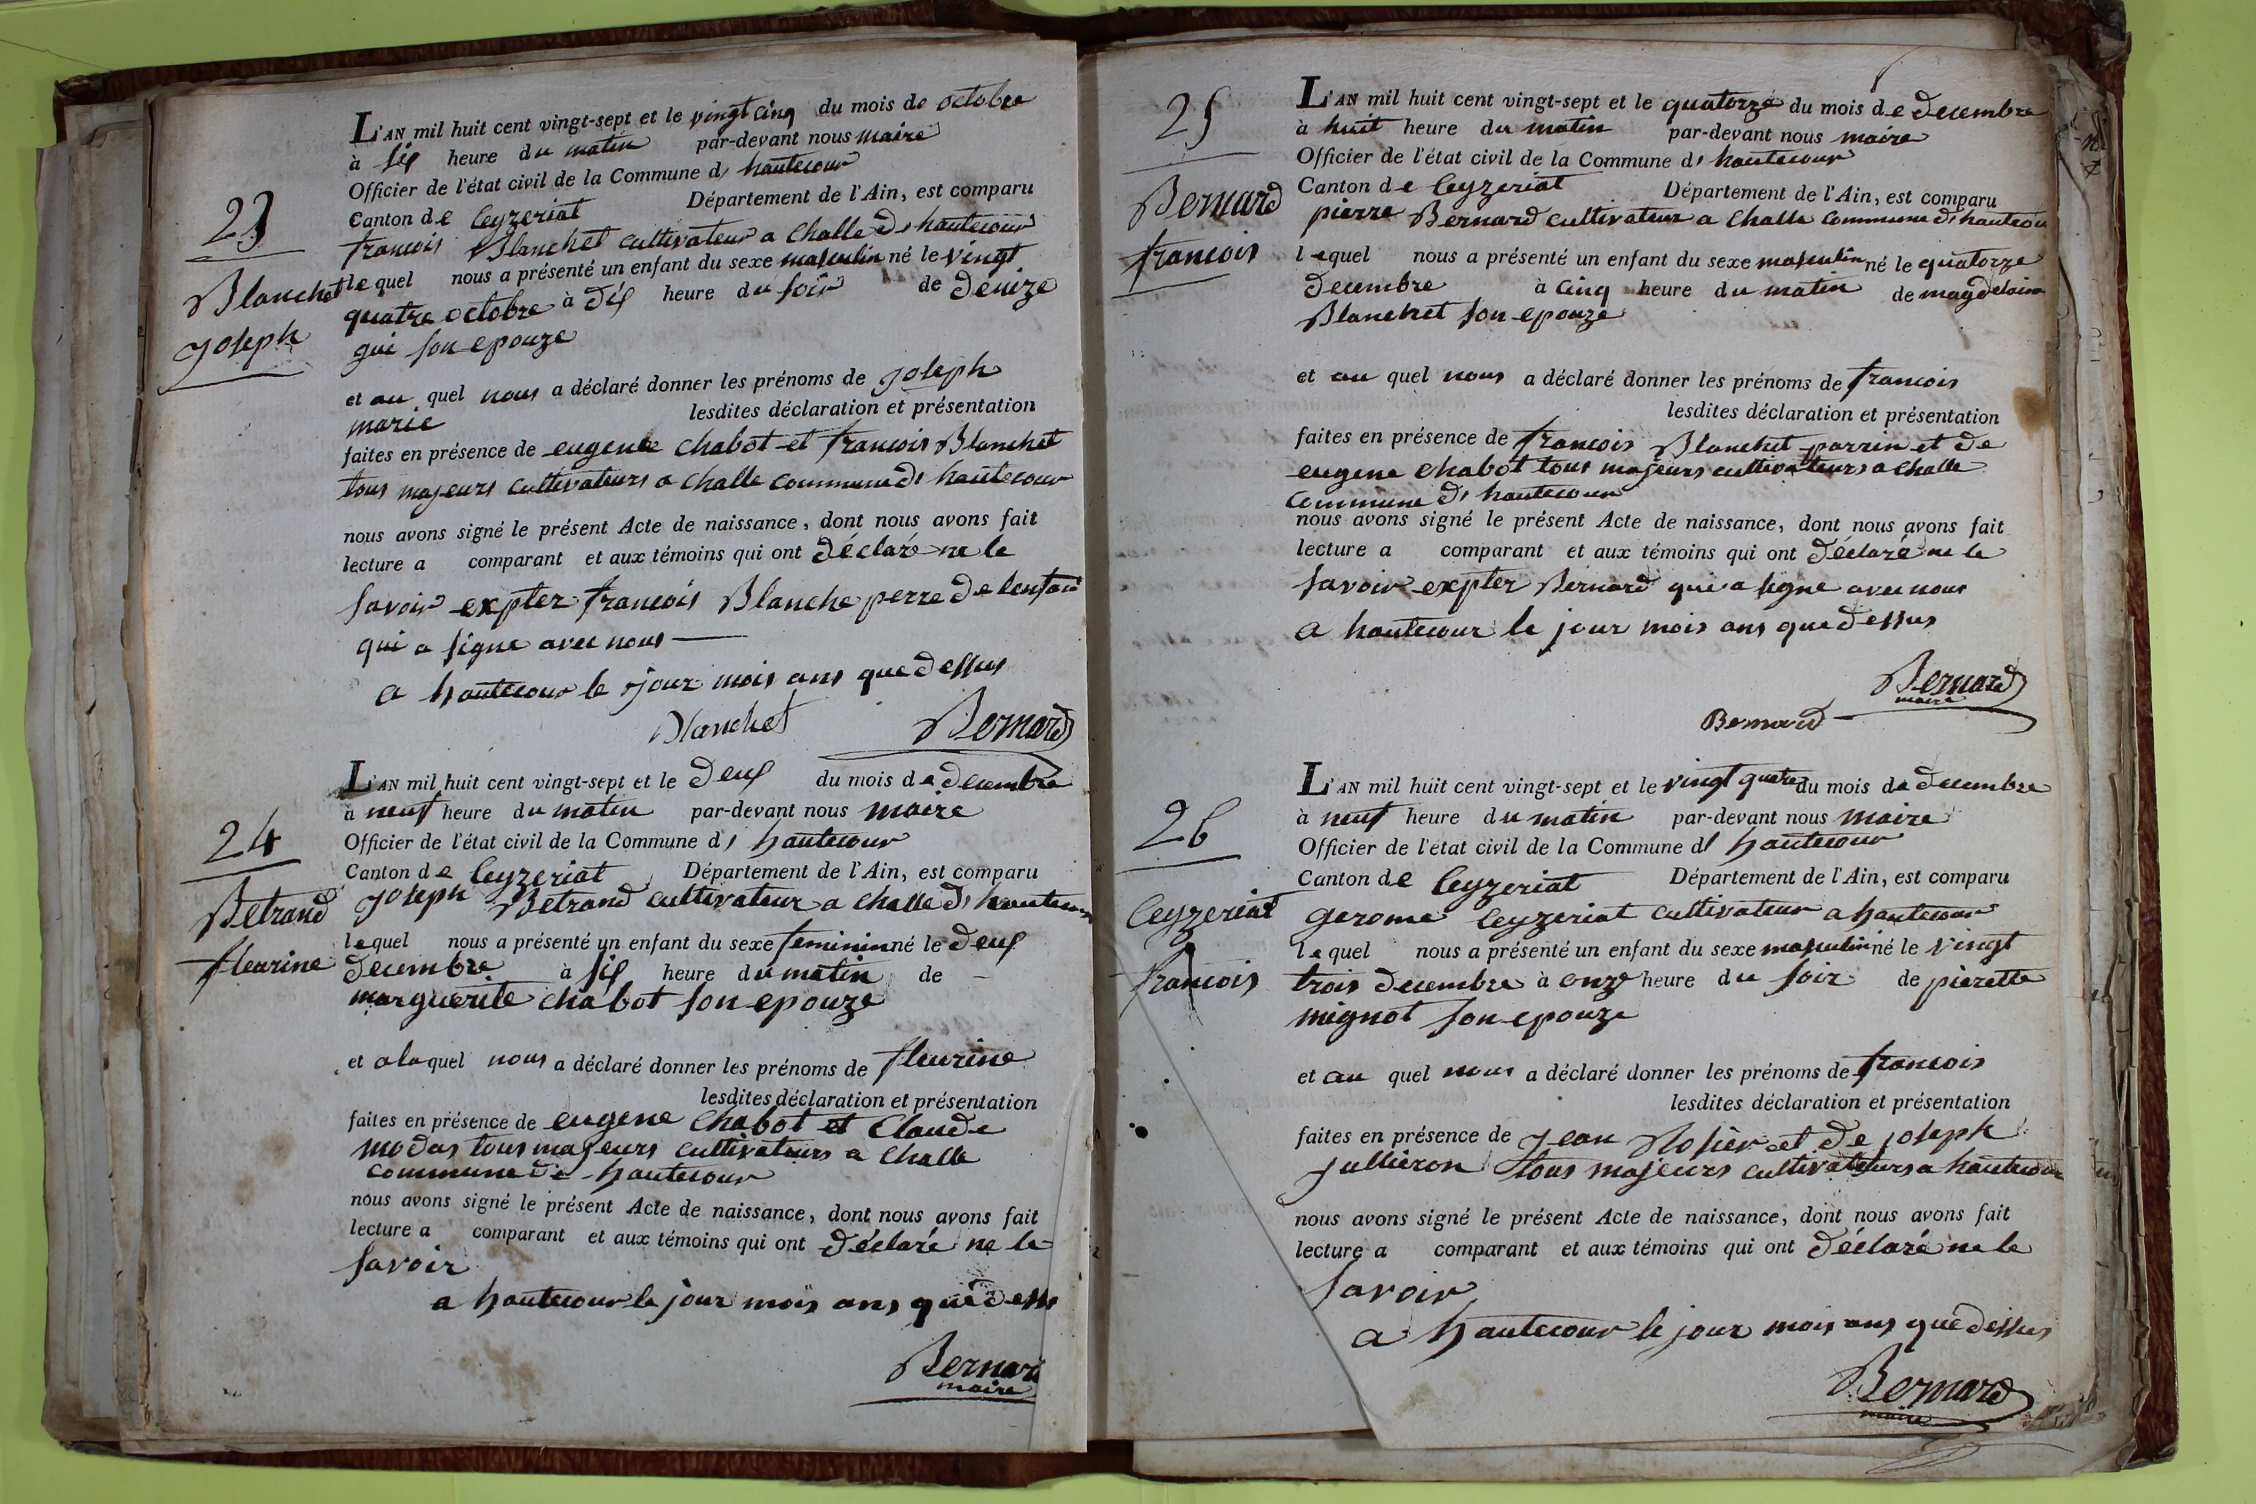 23
Blanchet
Joseph
L'AN mil huit cent vingt-sept et le vingt cinq du mois de octobre
à six heure du matin par-devant nous maire
Officier de l'état civil de la Commune d, hautecour
Canton de Ceyzeriat Département de l'Ain, est comparu
francois Blanchet cultivateur a Challe d, hautecour
lequel nous a présenté un enfant du sexe masculin né le vingt
quatre octobre à dix heure du soir de denize
gui son epouze
et au quel nous a déclaré donner les prénoms de Joseph
marie lesdites déclaration et présentation
faites en présence de eugene chabot et francois Blanchet
tous majeurs cultivateurs a challe commune d, hautecour
nous avons signé le présent Acte de naissance, dont nous avons fait
lecture a comparant et aux témoins qui ont déclaré ne le
savoir expter francois Blanche perre de lenfant
qui a signe avec nous
a hautecour le jour mois ans que dessus
Blanchet Bernard
24
Betrand
fleurine
L'AN mil huit cent vingt-sept et le deux du mois de decembre
à neuf heure du matin par-devant nous maire
Officier de l'état civil de la Commune d, hautecour
Canton de Ceyzeriat Département de l'Ain, est comparu
Joseph Betrand cultivateur a challe d, hautecour
lequel nous a présenté un enfant du sexe feminin né le deux
decembre à six heure du matin de
marguerite chabot son epouze
et a la quel nous a déclaré donner les prénoms de fleurine
lesdites déclaration et présentation
faites en présence de eugene Chabot et Claude
modas tous majeurs cultivateurs a Challe
commune de hautecour
nous avons signé le présent Acte de naissance, dont nous avons fait
lecture a comparant et aux témoins qui ont déclaré ne le
savoir
a hautecour le jour mois ans que dess
Bernard
maire
25
Bernard
francois
L'AN mil huit cent vingt-sept et le quatorze du mois de decembre
à huit heure du matin par-devant nous maire
Officier de l'état civil de la Commune d, hautecour
Canton de Ceyzeriat Département de l'Ain, est comparu
pierre Bernard cultivateur a Challe commune d, hautecou
lequel nous a présenté un enfant du sexe masculin né le quatorze
decembre à cinq heure du matin de magdelaine
Blanchet son epouze
et au quel nous a déclaré donner les prénoms de francois
lesdites déclaration et présentation
faites en présence de francois Blanchet parrin et de
eugene chabot tous majeurs cultivateurs a challe
commune d, hautecour
nous avons signé le présent Acte de naissance, dont nous avons fait
lecture a comparant et aux témoins qui ont déclaré ne le
savoir expter Bernard qui a signe avec nous
a hautecour le jour mois ans que dessus
Bernard
maire
Bernard
26
Ceyzeriat
francois
L'AN mil huit cent vingt-sept et le vingt quatre du mois de decembre
à neuf heure du matin par-devant nous maire
Officier de l'état civil de la Commune d, hautecour
Canton de Ceyzeriat Département de l'Ain, est comparu
gerome Ceyzeriat cultivateur a hautecour
lequel nous a présenté un enfant du sexe masculin né le vingt
trois decembre à onze heure du soir de pierette
mignot son epouze
et au quel nous a déclaré donner les prénoms de francois
lesdites déclaration et présentation
faites en présence de Jean Rosier et de joseph
Jullieron tous majeurs cultivateurs a hautecour
nous avons signé le présent Acte de naissance, dont nous avons fait
lecture a comparant et aux témoins qui ont déclaré ne le
savoir
a hautecour le jour mois ans que dessus
Bernard
maire